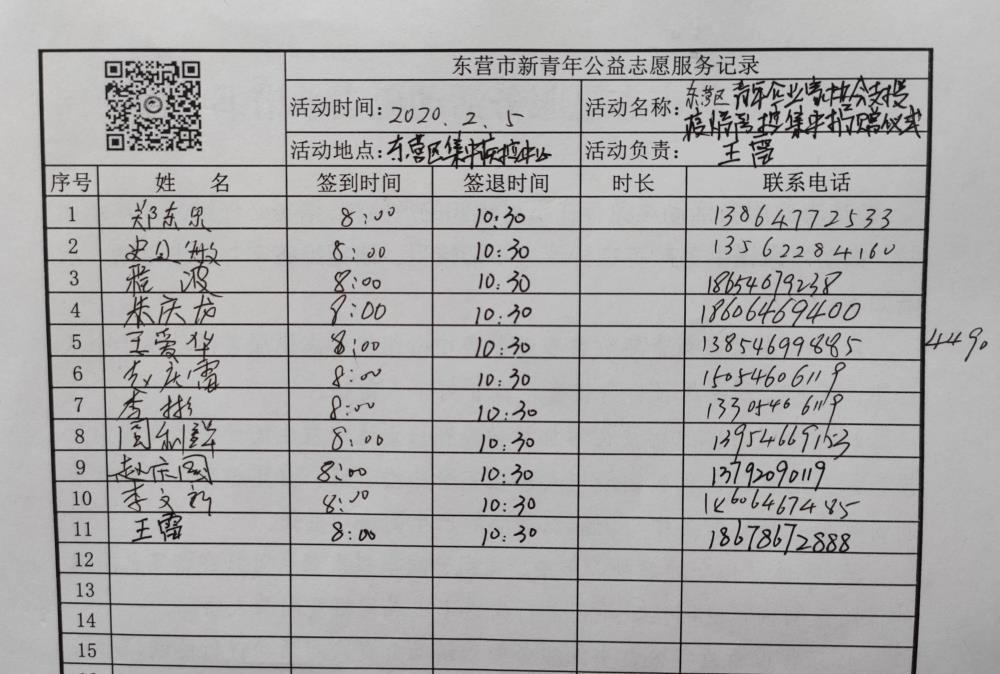 东营市新青年公益志愿服务记录
活动时间: 2020.2.5 活动名称: 东营区青年企业家协会支援
疫情防控集中捐赠仪式
活动地点: 东营区集中 中心 活动负责: 王雷
序号 姓 名 签到时间 签退时间 时长 联系电话
1 郑东 8:00 10:30 13864772533
2 8:00 10:30 13562284160
3 程波 8:00 10:30 18654679238
4 朱庆龙 8:00 10:30 18606469400
5 王爱华 8:00 10:30 13854699885 4490
6 庆雷 8:00 10:30 15054606119
7 李彬 8:00 10:30 13305466119
8 周利群 8:00 10:30 13954669153
9 赵庆国 8:00 10:30 13792090119
10 李文新 8:00 10:30 18606467485
11 王雷 8:00 10:30 18678672888
12
13
14
15